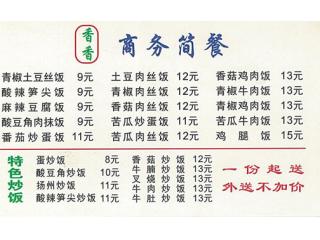 香香
商务简餐
青椒土豆丝饭 9元 土豆肉丝饭 12元 香菇鸡肉饭 13元
酸辣笋尖饭 9元 青椒肉丝饭 12元 青椒牛肉饭 13元
麻辣豆腐饭 9元 香菇肉丝饭 12元 青椒鸡肉饭 13元
酸豆角肉抹饭 9元 苦瓜炒蛋饭 11元 苦瓜牛肉饭 13元
番茄炒蛋饭 11元 苦瓜肉丝饭 12元 鸡腿饭 15元
特色炒饭
蛋炒饭 8元 香菇炒饭 12元
酸豆角炒饭 10元 牛腩炒饭 13元
扬州炒饭 11元 叉烧炒饭 13元
酸辣笋尖炒饭 11元 牛肉炒饭 13元
牛肚炒饭 13元
一份起送
外送不加价